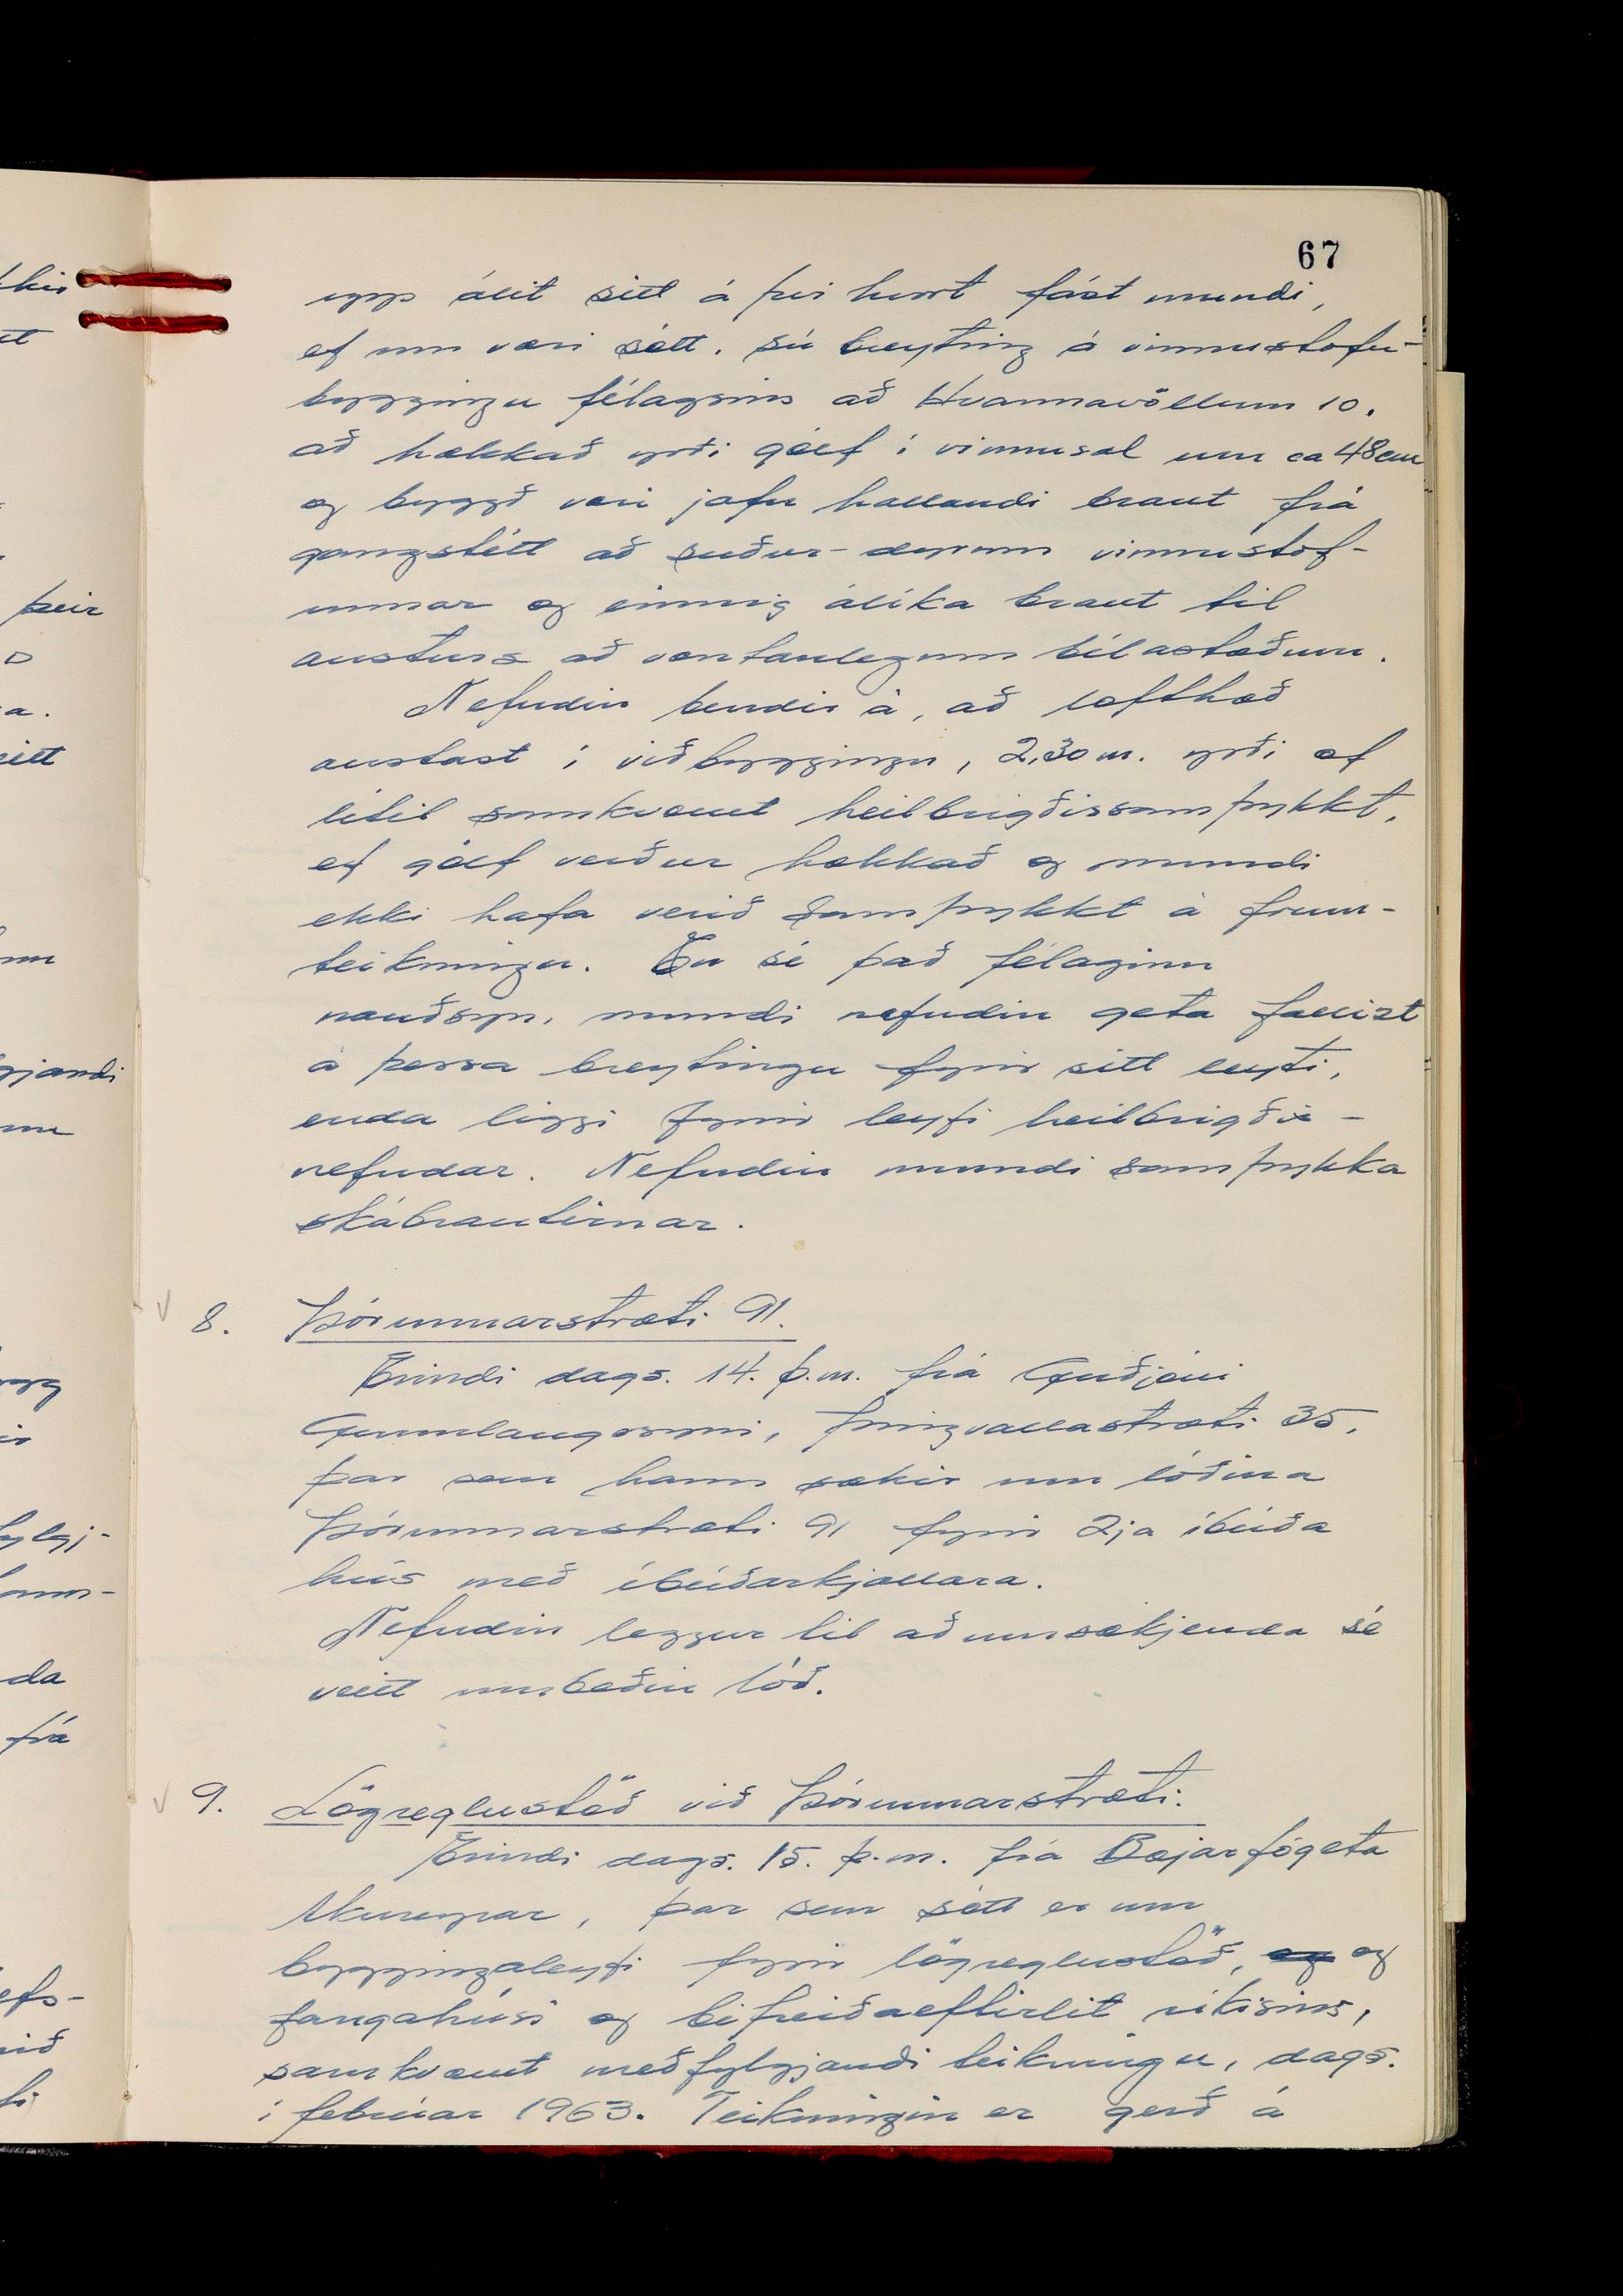 67
upp álit sitt á því hvort fást mundi,
ef um væri sótt, sú breyting á vinnustofu-
byggingu félagsins að Hvannavöllum 10,
að hækkað yrði gólf í vinnusal um ca 48 cm
og byggð væri jafn hallandi braut frá
gangstétt að suður-dyrum vinnustof-
unnar og einnig álíka braut til
austurs að væntanlegum bílastæðum.
Nefndin bendir á, að lofthæð
austast í viðbyggingu, 2,30 m. yrði of
lítil samkvæmt heilbrigðissamþykkt,
ef gólf verður hækkað og mundi
ekki hafa verið samþykkt á frum-
teikningu. En sé það félaginu
nauðsyn, mundi nefndin geta fallizt
á þessa breytingu fyrir sitt leyti,
enda liggi fyrir leyfi heilbrigðis-
nefndar. Nefndin mundi samþykkja
skábrautirnar.
8. Þórunnarstræti 91.
Erindi dags. 14. þ.m. frá Guðjóni
Gunnlaugssyni, Þingvallastræti 35,
þar sem hann sækir um lóðina
Þórunnarstræti 91 fyrir 2ja íbúða
hús með íbúðarkjallara.
Nefndin leggur til að umsækjenda sé
veitt umbeðin lóð.
9. Lögreglustöð við Þórunnarstræti.
Erindi dags. 15. þ.m. frá Bæjarfógeta
Akureyrar, þar sem sótt er um
byggingaleyfi fyrir lögreglustöð, og og
fangahúsi og bifreiðaeftirlit ríkisins,
samkvæmt meðfylgjandi teikningu, dags.
í febrúar 1963. Teikningin er gerð á
þeir
a.
gjandi
da
frá
efs-